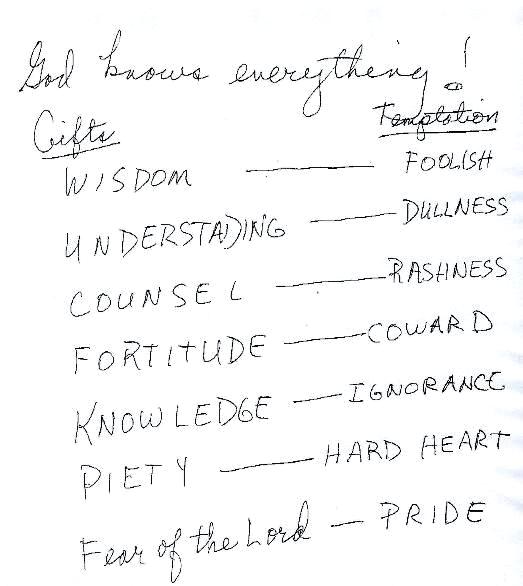 God knows everything!
Gifts Temptation
WISDOM — FOOLISH
UNDERSTADING — DULLNESS
COUNSEL — RASHNESS
FORTITUDE — COWARD
KNOWLEDGE — IGNORANCE
PIETY — HARD HEART
Fear of the Lord — PRIDE